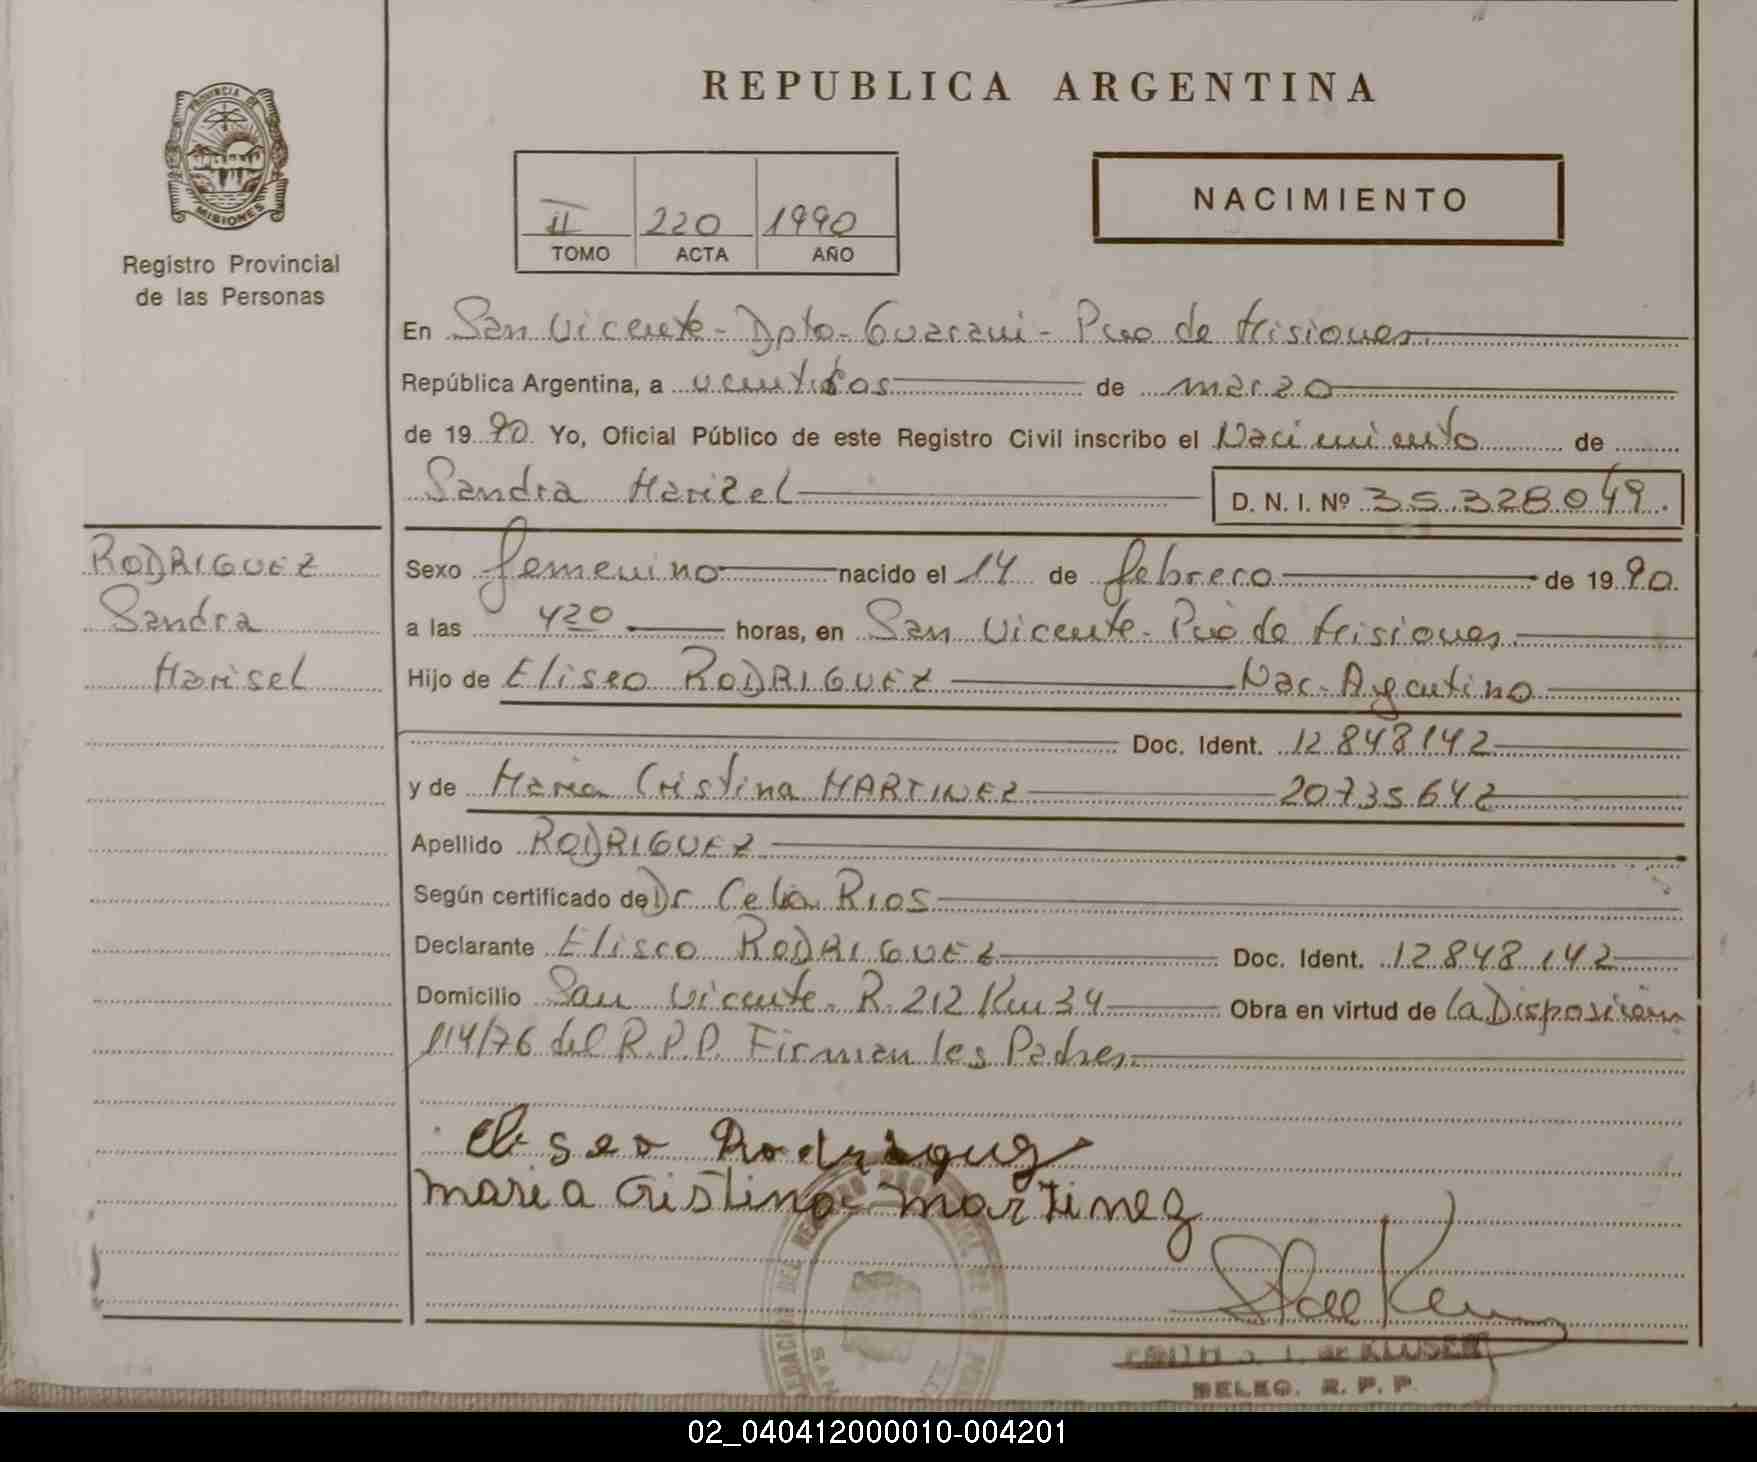 REPUBLICA ARGENTINA
PROVINCIA DE
MISIONES
Registro Provincial
de las Personas
II 220 1990
TOMO ACTA AÑO
NACIMIENTO
En San Vicente - Dpto - Guarani - Pcia de Misiones
República Argentina, a ventidos de marzo
de 19 90 Yo, Oficial Público de este Registro Civil inscribo el Nacimiento de
Sandra Marizel D. N. I. Nº 35.328049.
RODRIGUEZ
Sandra
Marisel
Sexo femenino nacido el 14 de febrero de 19 90.
a las 420 horas, en San Vicente - Pcia de Misiones
Hijo de Eliseo RODRIGUEZ Nac. Argentino
Doc. Ident. 12.848142
y de Maria Cristina MARTINEZ 20735642
Apellido RODRIGUEZ
Según certificado de Dr Celia Rios
Declarante Eliseo RODRIGUEZ Doc. Ident. 12.848.142
Domicilio San Vicente - R. 212 Km 34 Obra en virtud de la Disposición
114/76 del R.P.P. Firman los Padres
Eliseo Rodriguez
Maria Cristina Martinez
SAN
de KLUSER
R. P. P.
02_040412000010-004201